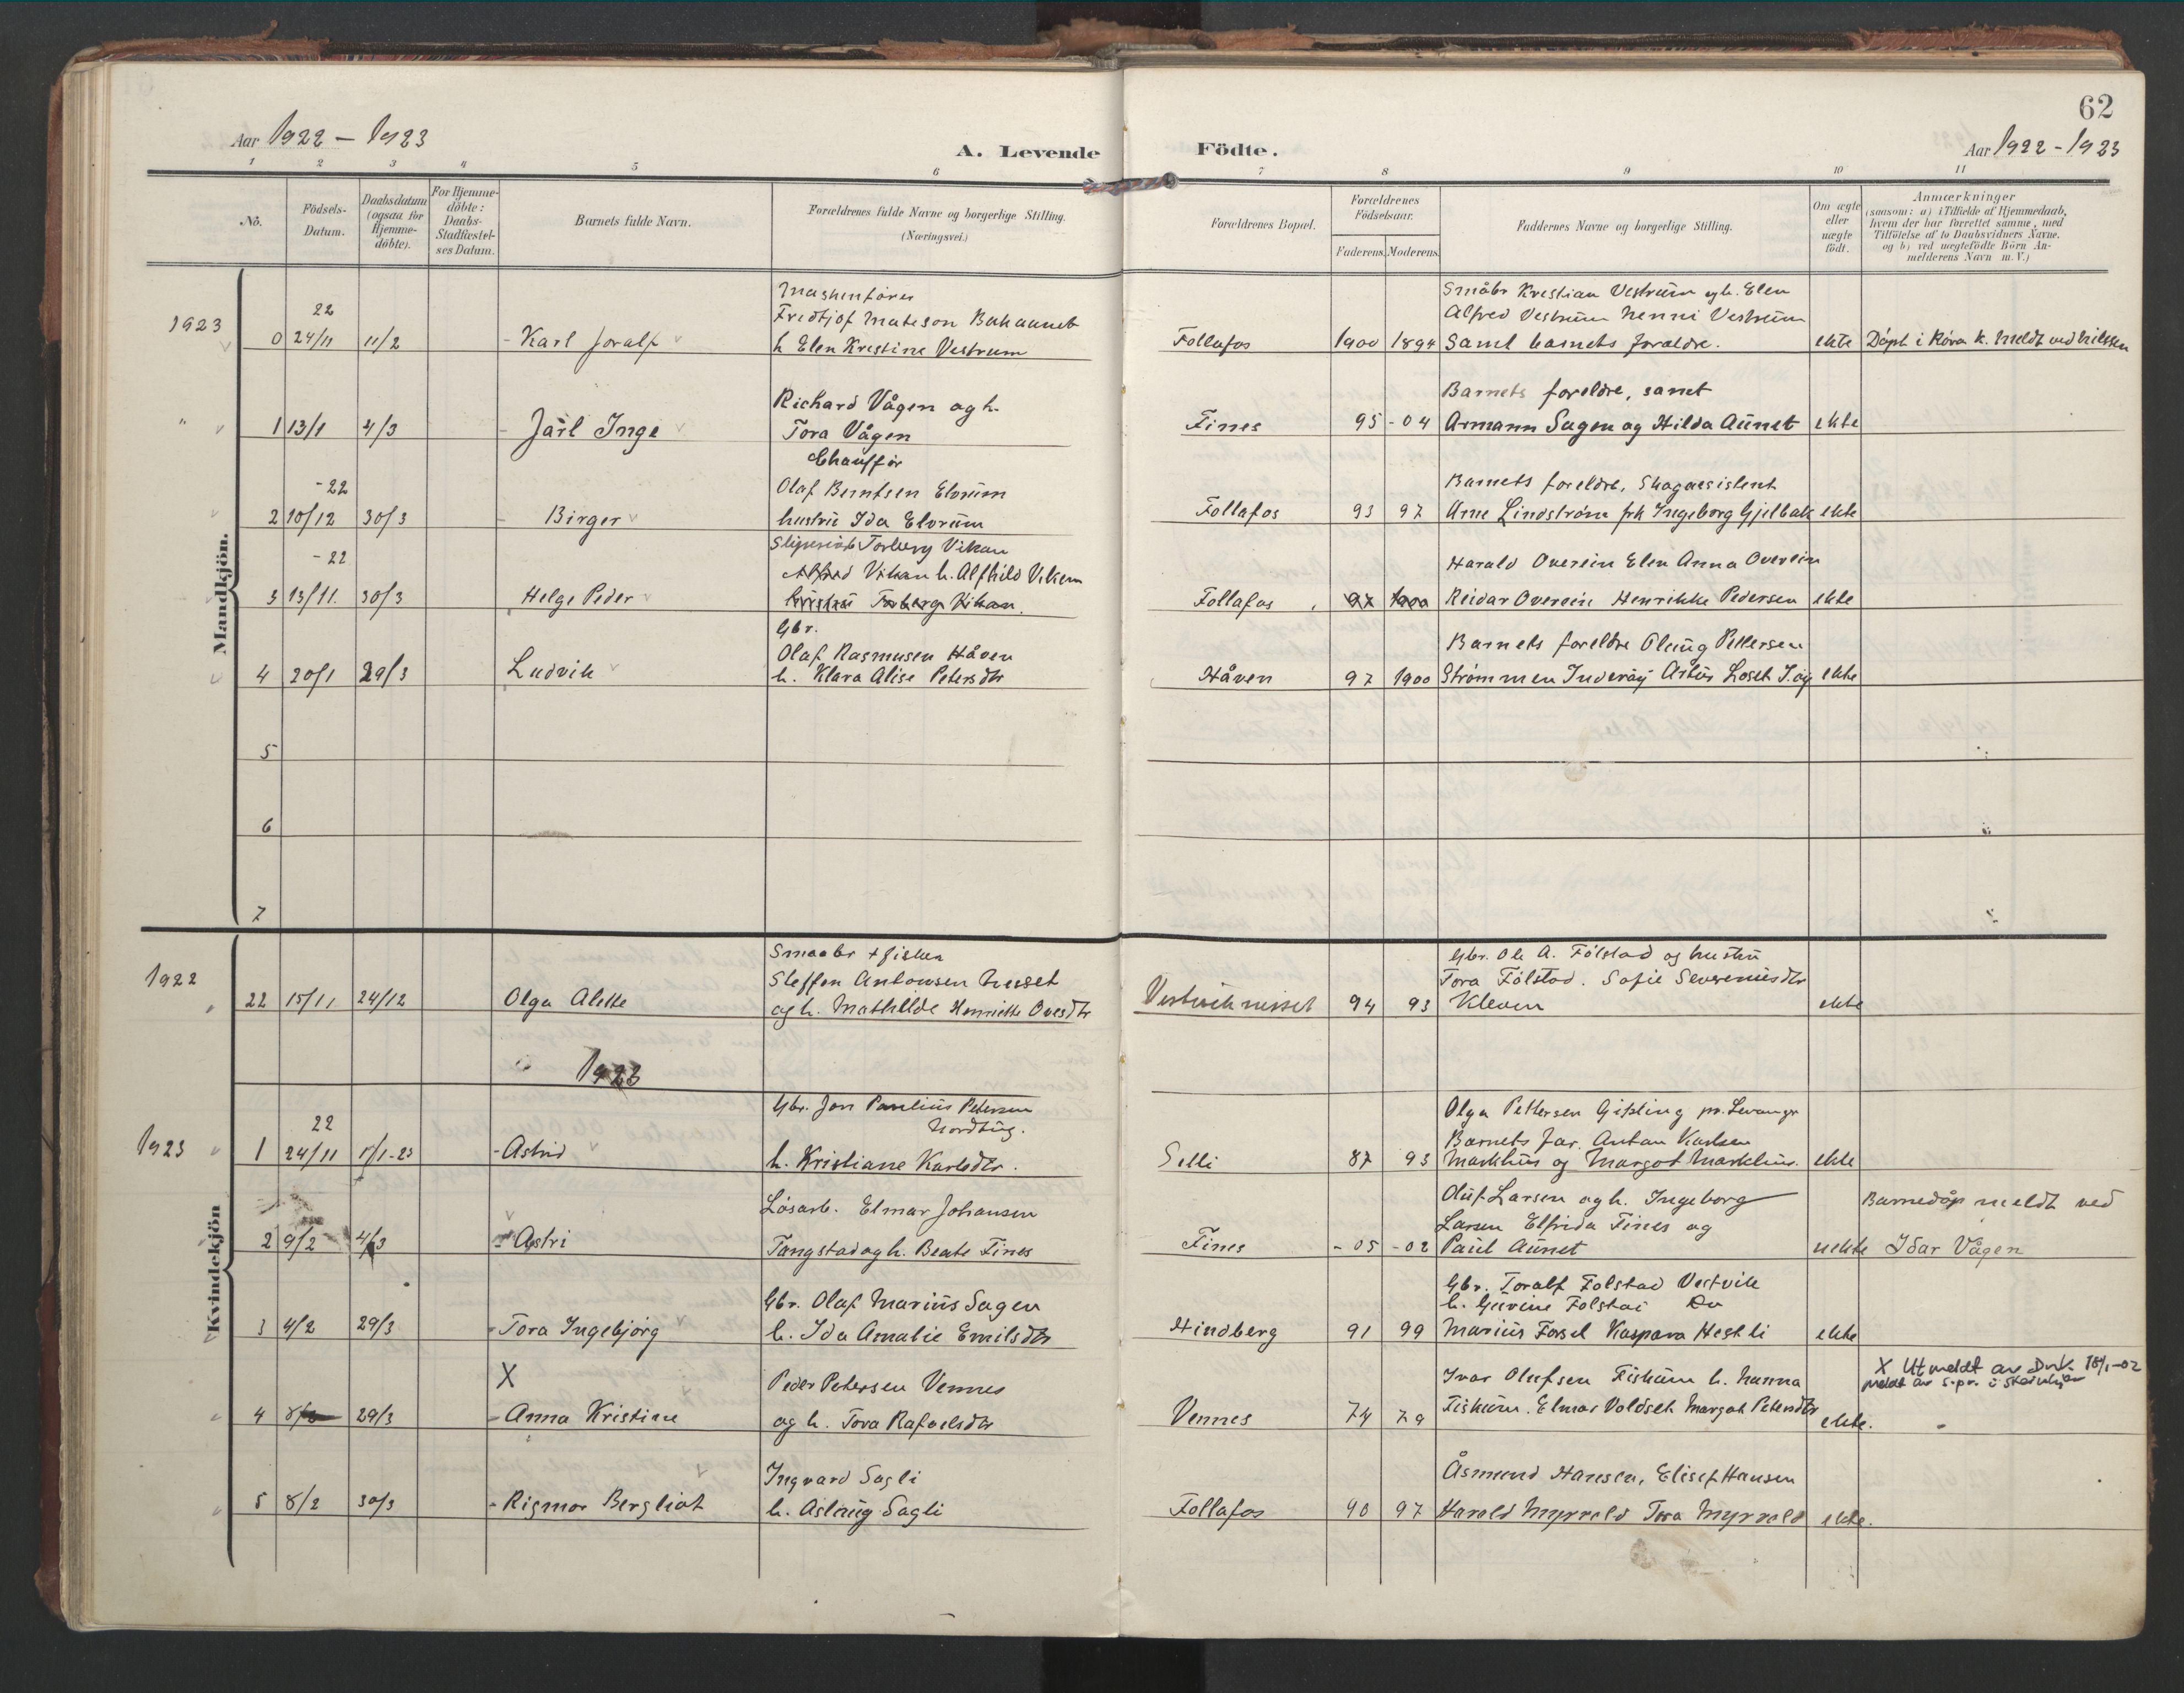 62
Aar 1922 — 1923
A. Levende Födte.
Aar 1922 - 1923
1 2 3 4 5 6 7 8 9 10 11
No.
Födsels-Datum.
Daabsdatum (ogsaa for Hjemme-döbte).
For Hjemme-döbte: Daabs-Stadfæstel-ses Datum.
Barnets fulde Navn.
Forældrenes fulde Navne og borgerlige Stilling.
(Næringsvei.)
Forældrenes Bopæl.
Forældrenes Födselsaar.
Faderens. Moderens.
Faddernes Navne og borgerlige Stilling.
Om ægte eller uægte födt.
Anmærkninger
(saasom: a) i Tilfælde af Hjemmedaab,
hvem der har forrettet samme, med
Tilföielse af to Daabsvidners Navne,
og b) ved uægtefödte Börn An-
melderens Navn m. V.)
Mandkjön.
1923
22
0 24/11 11/2 - Karl Joralf
Maskinfører
Fredtjof Mateson Bakaunet
h Elen Kristine Vestrum
Follafos 1900 1894
Småbr Kristian Vestrum og h. Elen
Alfred Vestrum Nenni Vestrum
Samt barnets foraldre.
ekte Døpt i Røra k. Meldt ved Nilssen
" 1 13/1 4/3 - Jarl Inge
Richard Vågen og h.
Tora Vågen
Fines 95 - 04
Barnets foreldre, samt
Armann Sagen og Hilda Aunet ekte
-22
2 10/12 30/3 - Birger
Chauffør
Olaf Berntsen Elvrum
hustru Ida Elvrum
Follafos 93 97
Barnets foreldre, Skogassistent
Arne Lindstrøm frk Ingeborg Gjelbak ekte
-22
3 13/11. 30/3 Helge Peder
Torberg Vikan
Alfred Vikan h. Alfhild Vikan
hustru Torberg Vikan.
Follafos 97 1900
Harald Overein Elen Anna Overein
Reidar Overein Henrikke Pedersen ekte
4 20/1 29/3 Ludvik
Gbr.
Olaf Rasmusen Håven
h. Klara Alise Petersdtr
Håven 97 1900
Barnets foreldre Olaug Pettersen
Strømmen Inderøy Astur Loset I.øy ekte
5
6
7
Kvindekjön
1922
22 15/11 24/12 Olga Alette
Smaabr + fisker
Steffen Antonsen Nesset
og h. Mathilde Henriette Ovesdtr
94 93
Gbr. Ole A. Følstad og hustru
Tora Følstad. Sofie Severeniusdtr
Kleven
ekte
1923
1923
22
1 24/11 1/1-23 - Astrid
Gbr. Jon Paulius Petersen
Nordtug.
h. Kristiane Karlsdtr.
Selli 87 93
Olga Pettersen Gipling pr. Levanger
Barnets far. Anton Karlsen
Markhus og Margot Markhus. ekte
2 9/2 4/3 - Astri
Løsarb. Elmar Johansen
Tangstad og h. Beate Fines
Fines - 05 - 02
Oluf Larsen og h. Ingeborg
Larsen Elfrida Fines og
Paul Aunet
uekte
Barnedåp meldt ved
Idar Vågen
3 4/2 29/3 - Tora Ingebjørg
Gbr. Olaf Marius Sagen
h. Ida Amalie Emilsdtr
Hindberg 91 99
Gbr. Toralf Folstad Vestvik
h. Gurine Folstad Do
Marius Forsel Kaspara Hestli ekte
X
4 8/2 29/3 - Anna Kristine
Peder Petersen Vennes
og h. Tora Rafaelsdtr
Vennes 74 79
Ivar Olufsen Fiskum h. Hanna
Fiskum. Elmar Voldset Margot Petersdtr
ekte.
X Utmeldt av Dnk 18/1-02
meldt av s.pr. i Steinkjer
5 8/2 30/3 - Rigmor Bergliot
Ingvard Sagli
h. Aslaug Sagli
Follafos 90 97
Åsmund Hansen, Elisef Hansen
Harald Myrvold Tora Myrvold ekte.